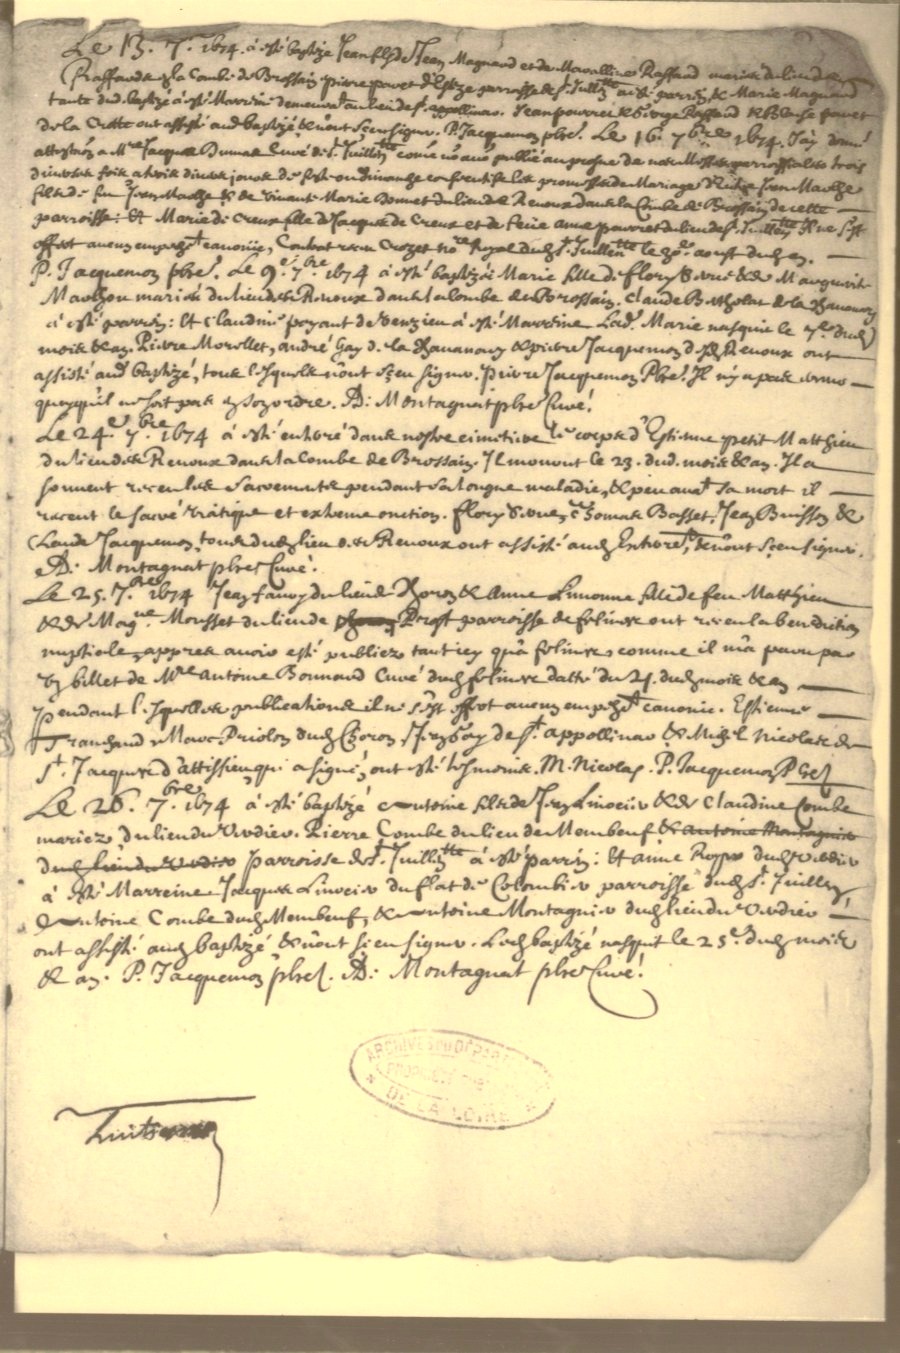 Le 13. 7.bre 1674. a esté baptizé Jean fils de Jean Magnand et de Marcelline Raffaud mariez du lieu de
Raffaud &
tante dud. baptizé a esté Marreine demeurant au lieu de St. appollinar. Jean pourret & George Raffaud & Blaise pouret
de la Crotte ont assisté aud baptizé & n'ont sceu signer. P. Jacquemon pbre. Le 16. 7.bre 1674. J'ay donné
attestation a Mre Jacques Dumas Curé de St. Juillien comme nous avons publié au prosne de nos Messes parroissialles trois
diverses fois a trois divers jours de feste ou dimanche consecutifs les promesses de Mariage d'entre Jean Machze
fils de feu Jean Machze & de vivante Marie Bonnet du lieu des Renoux dans la Combe de Brossain de cette
parroisse: Et Marie de Creux fille d'Jacques de Creux et de feüe anne pourret du lieu de St. Juillien & ne s'est
offert aucun empeschet. canonic, Controt receu Crozet nore. Royal dud St. Juillien le 30e. aoust dud an.
P. Jacquemon pbre. Le 9e. 7.bre 1674 a esté baptizée Marie fille de flory & de Marguerite
Machon mariés du lieu des Renoux dans la Combe de Brossain. Claude Betholat de la Chavanary
a esté parrein: Et Claudine poyant de Venzieu a esté Marreine Lad. Marie nasquit le 7e. dud
mois & an. Pierre Morellet, andré Gay d. la Chavanary & pierre Jacquemon d. des Renoux ont
assisté aud baptizé, tous lesquels n'ont sceu signer. pierre Jacquemon Pbre. Il n'y a pas
quoyqu'il ne soit pas en son ordre. D: Montagnat pbre Curé.
Le 24e 7.bre 1674 a esté enterré dans nostre cimetiere le corps d'Estienne petit Matthieu
du lieu des Renoux dans la Combe de Brossain. Il mourut le 23. dud. mois & an. Il a
souvent receu les Sacrements pendant sa longue maladie, & peu avat. sa mort il
receut le sacré viatique et extreme onction. flory , Thomas Basset, Jean Buisson &
Claude Jacquemon, tous dud lieu des Renoux ont assisté aud Enterret, & n'ont sceu signer.
D: Montagnat pbre Curé.
Le 25. 7.bre 1674 Jean fanoy du lieu de Choron & Anne Limonne fille de feu Matthieu
& de Magne. Mousset du lieu de parroisse de felines ont receu la benediction
nuptiale, apprés avoir esté publiez tant icy qu'a felines comme il m'a paru par
un billet de Mre antoine Bonnaud Curé dud felines datté du 21. dud mois & an
pendant lesquelles publications il ne s'est offert aucun empescht. canonic. Estienne
Tranchand, Marc Priolon dud Choron, Jean Gay de St. appollinar & Michel Nicolas de
St. Jacques d'attissieu, qui a signé, ont esté tesmoins. M. Nicolas. P. Jacquemon Pbre
Le 26. 7.bre 1674 a esté baptizé Antoine fils de Jean Linocier & de Claudine Combe
mariez, du lieu du Verdier. Pierre Combe du lieu de Membeuf & antoine Montagnier
dud lieu du Verdier parroisse de St. Juillien a esté parrin: Et anne dud Verdier
a esté Marreine Jacques Linocier du flat de Colombier parroisse dud St. Juillien
Antoine Combe dud Membeuf, & Antoine Montagnier dud lieu du Verdier
ont assisté aud baptizé & n'ont sceu signer. Led baptizé nasquit le 25e. dud mois
& an. P. Jacquemon pbre. D: Montagnat pbre Curé.
ARCHIVES DU DÉPARTEMENT
PROPRIÉTÉ
DE LA LOIRE